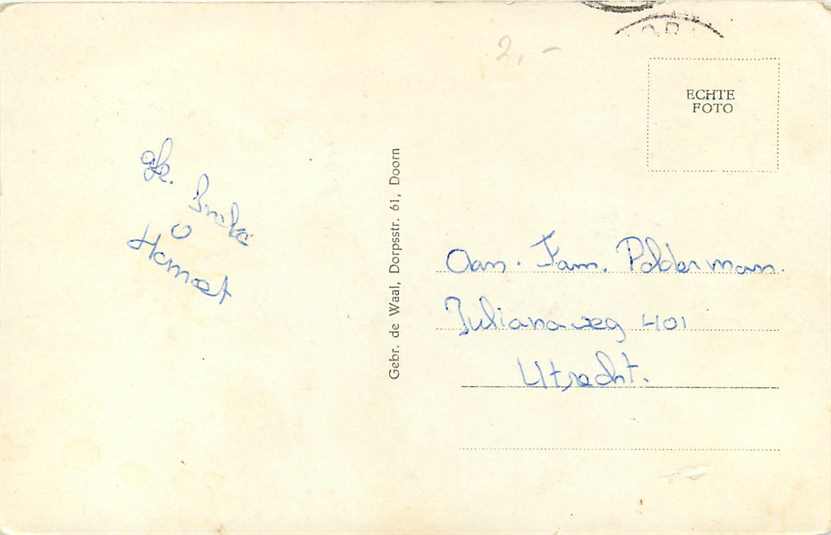 2,-
ECHTE
FOTO
Gebr. de Waal, Dorpsstr. 61, Doorn
Aan. Fam. Polderman.
Julianaweg 401
Utrecht.